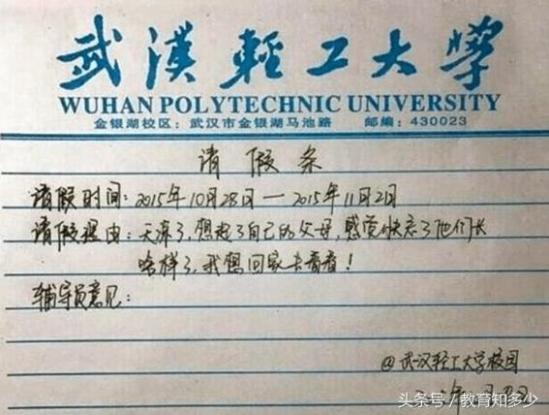 武漢輕工大學
WUHAN POLYTECHNIC UNIVERSITY
金银湖校区：武汉市金银湖马池路 邮编：430023
请假条
请假时间：2015年10月28日—2015年11月2日
请假理由：天凉了，想起了自己的父母，感觉快忘了他们长
啥样了，我想回家去看看！
辅导员意见：
@武汉轻工大学校园
头条号／教育知多少